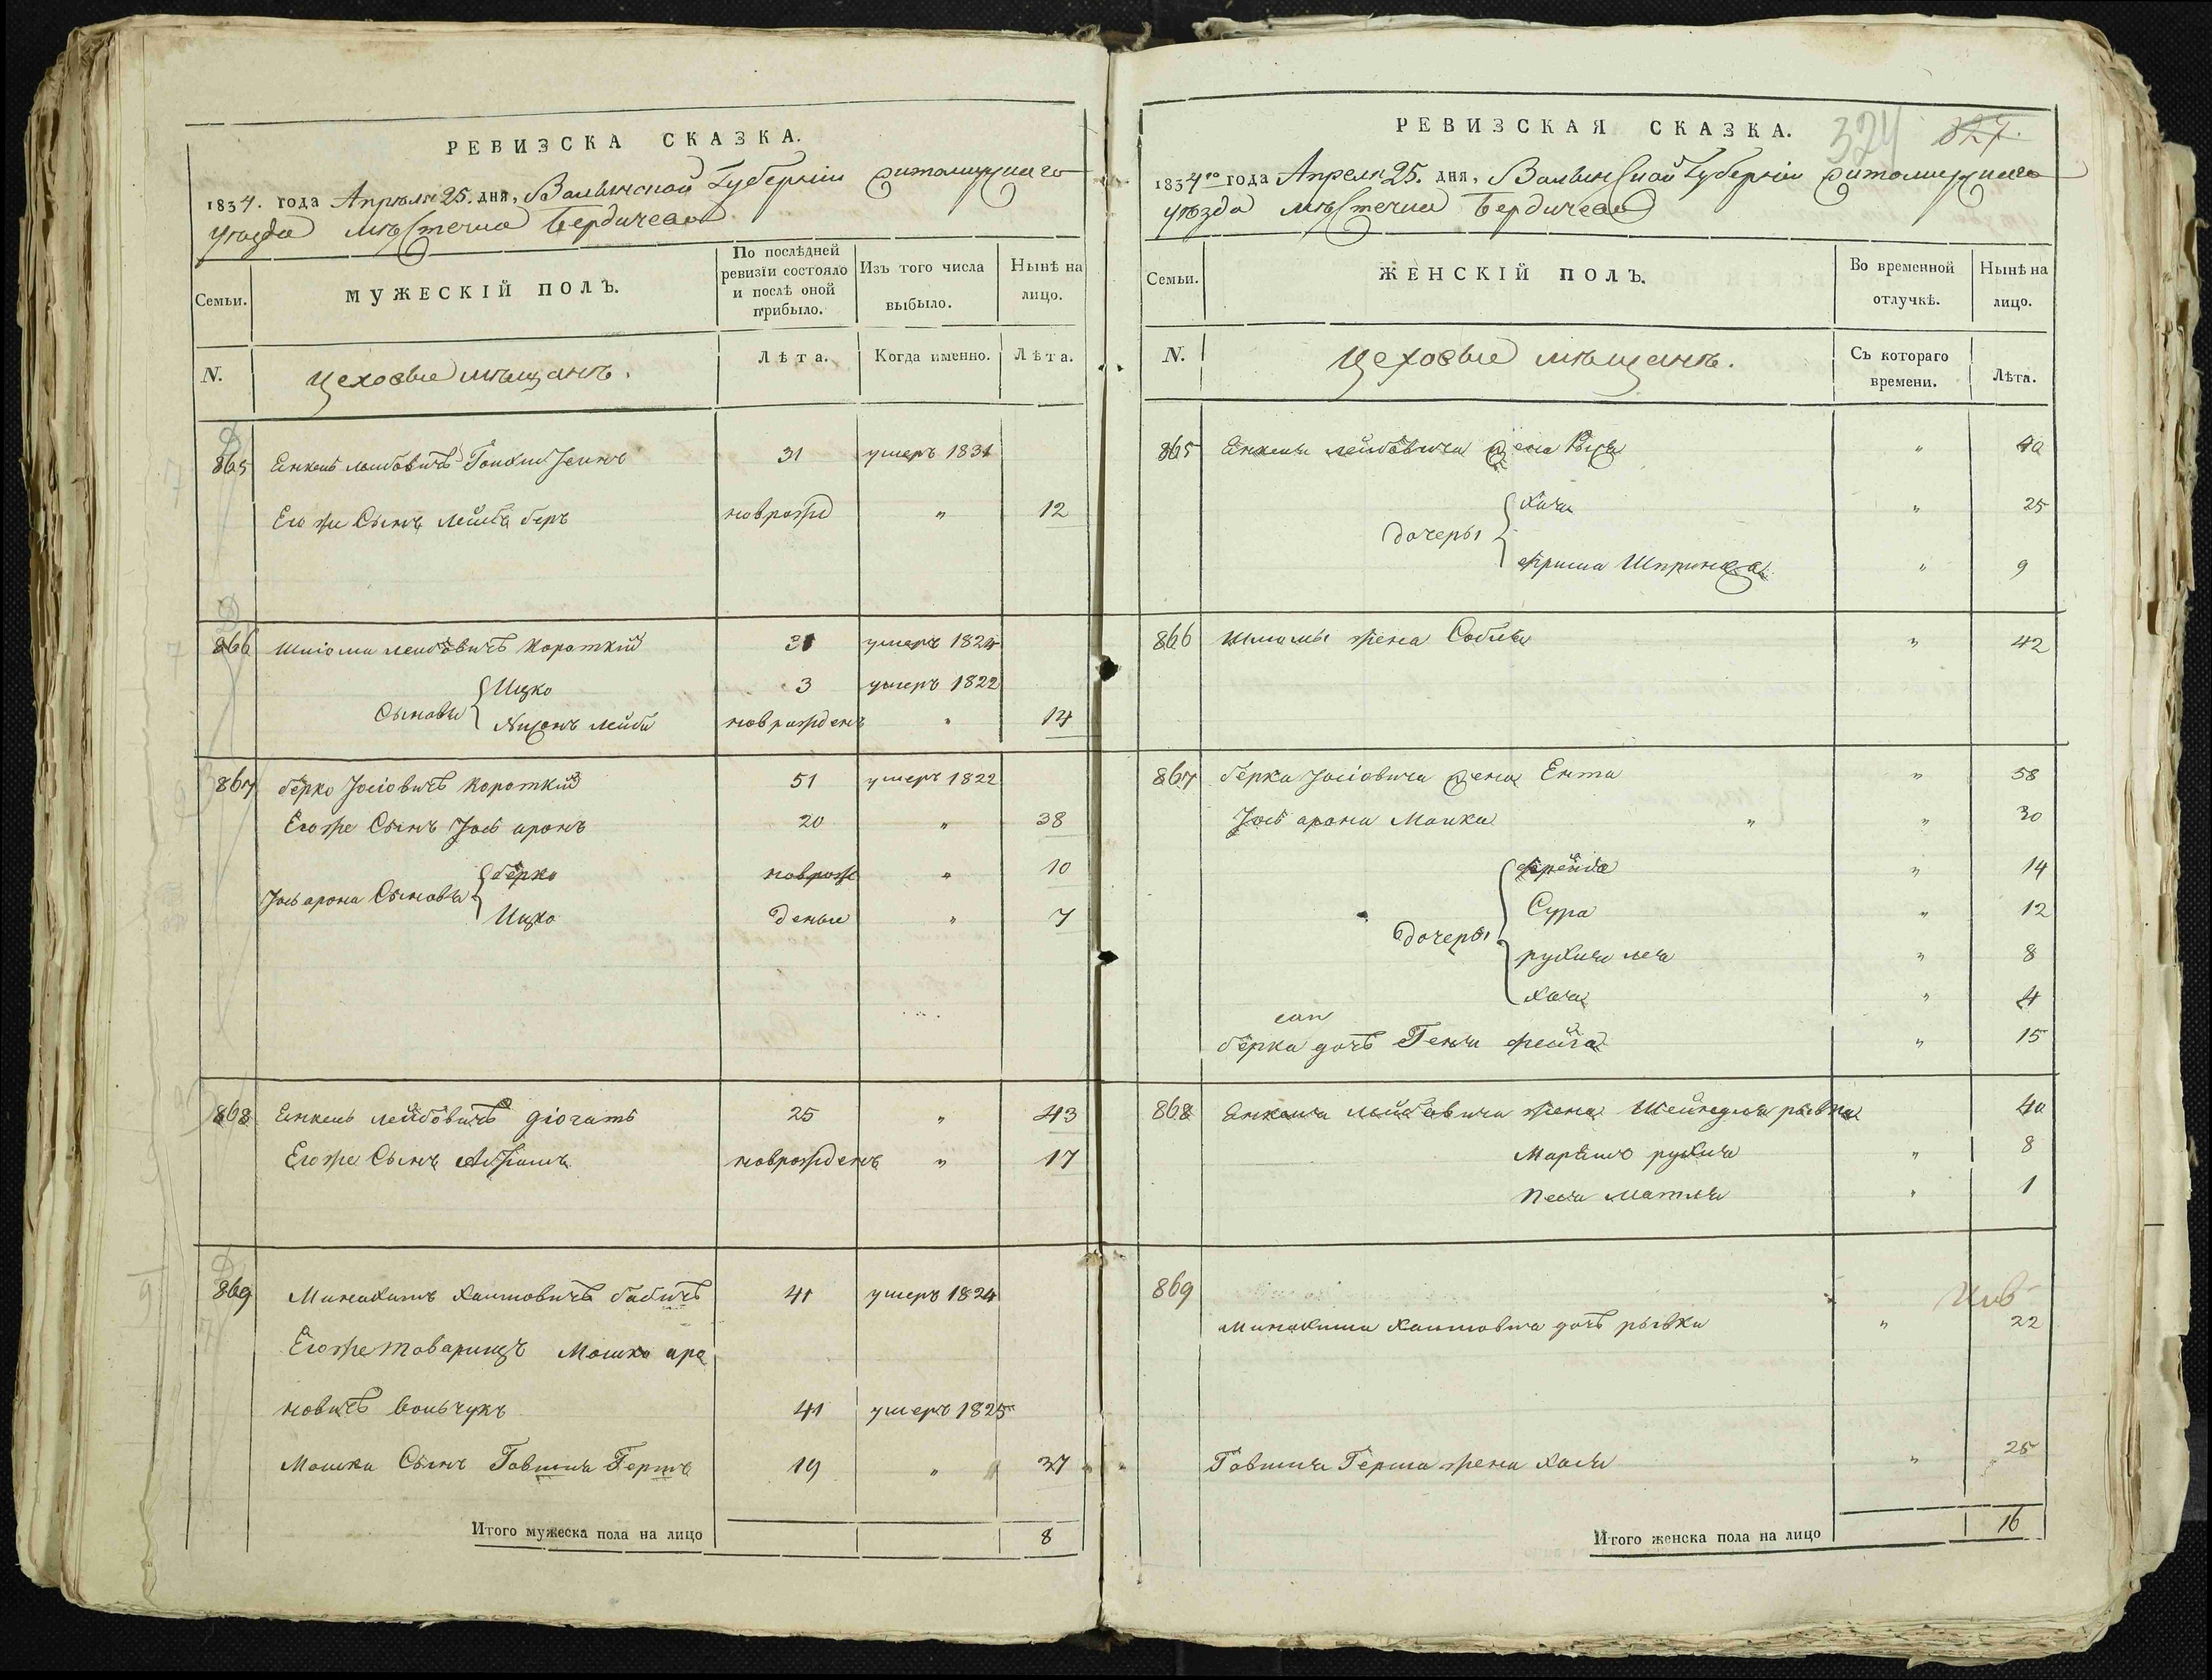 РЕВИЗСКА СКАЗКА.
1834. года Апреля 25. дня, Волынской Губернии Житомирского
уезда местечка Бердичева
Семьи.
МУЖЕСКІЙ ПОЛЪ.
По послѣдней ревизіи состояло и послѣ оной прибыло.
Изъ того числа выбыло.
Нынѣ на лицо.
N.
Цеховые мѣщанъ.
Лѣта.
Когда именно.
Лѣта.
865 Янкель Лейбовичъ 31 умеръ 1831
Его же Сынъ Лейба беръ новрожд " 12
866 Шліома Лейбовичъ Короткий 31 умеръ 1824
Сыновья
Ицко 3 умеръ 1822
Нисонъ Лейба новрожденъ " 14
867 берко Іосіовичъ Короткий 51 умеръ 1822
Его же Сынъ Іось аронъ 20 " 38
Іось арона Сыновья
берко новрож " 10
Ицко деные " 7
868 Янкель Лейбовичъ 25 " 43
Его же Сынъ новрожденъ " 17
869 Минахимъ Хаимовичъ бабичъ 41 умеръ 1824
Его же товарищъ Мошко аро
новичъ 41 умеръ 1825
Мошка Сынъ Гавшия Гершъ 19 " 37
Итого мужеска пола на лицо 8
РЕВИЗСКАЯ СКАЗКА.
324 327.
1834го года Апреля 25. дня, Волынской Губернии Житомирского
уезда местечка Бердичева
Семьи.
ЖЕНСКІЙ ПОЛЪ.
Во временной отлучкѣ.
Нынѣ на лицо.
N.
Цеховые мѣщанъ.
Съ котораго времени.
Лѣта.
865 Янкеля Лейбовича жена Рыся " 40
Дочеры
Хая " 25
Фрима Шпринца " 9
866 Шліомы жена Собля " 42
867 берка Іосіовича жена Ента " 58
Іось арона Малка " " 30
Дочеры
фрейда " 14
Сура " 12
рухля лея " 8
Хая " 4
берка дочь Геня фейга " 15
868 Янкеля Лейбовича жена Шейндля рывка 40
Маріам рухля " 8
Песя Матля " 1
869
Минахима Хаимовича дочь рывка " 22
Гавшия Герша жена Хая " 25
Итого женска пола на лицо 16